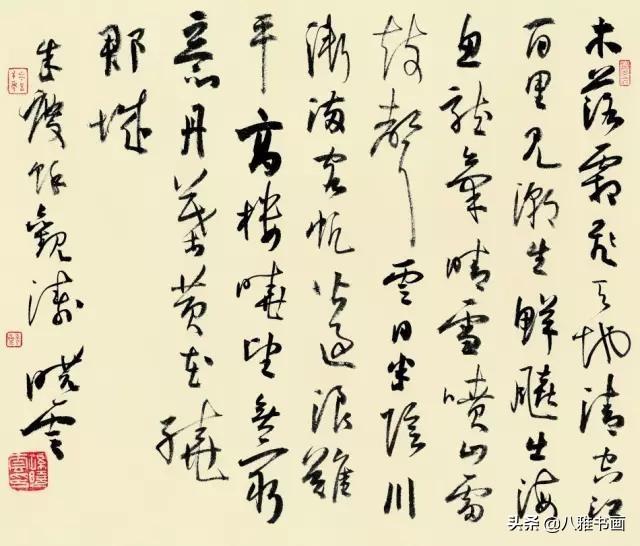 木落霜飛天地清空江
百里見潮生鮮飈出海
魚龍氣晴雪噴山雷
鼓聲雲日半陰川
漸滿客帆皆過浪難
平高樓曉望無窮
意丹葉黃花繞
郡城
朱慶餘觀濤 曉雲
头条 @八雅书画